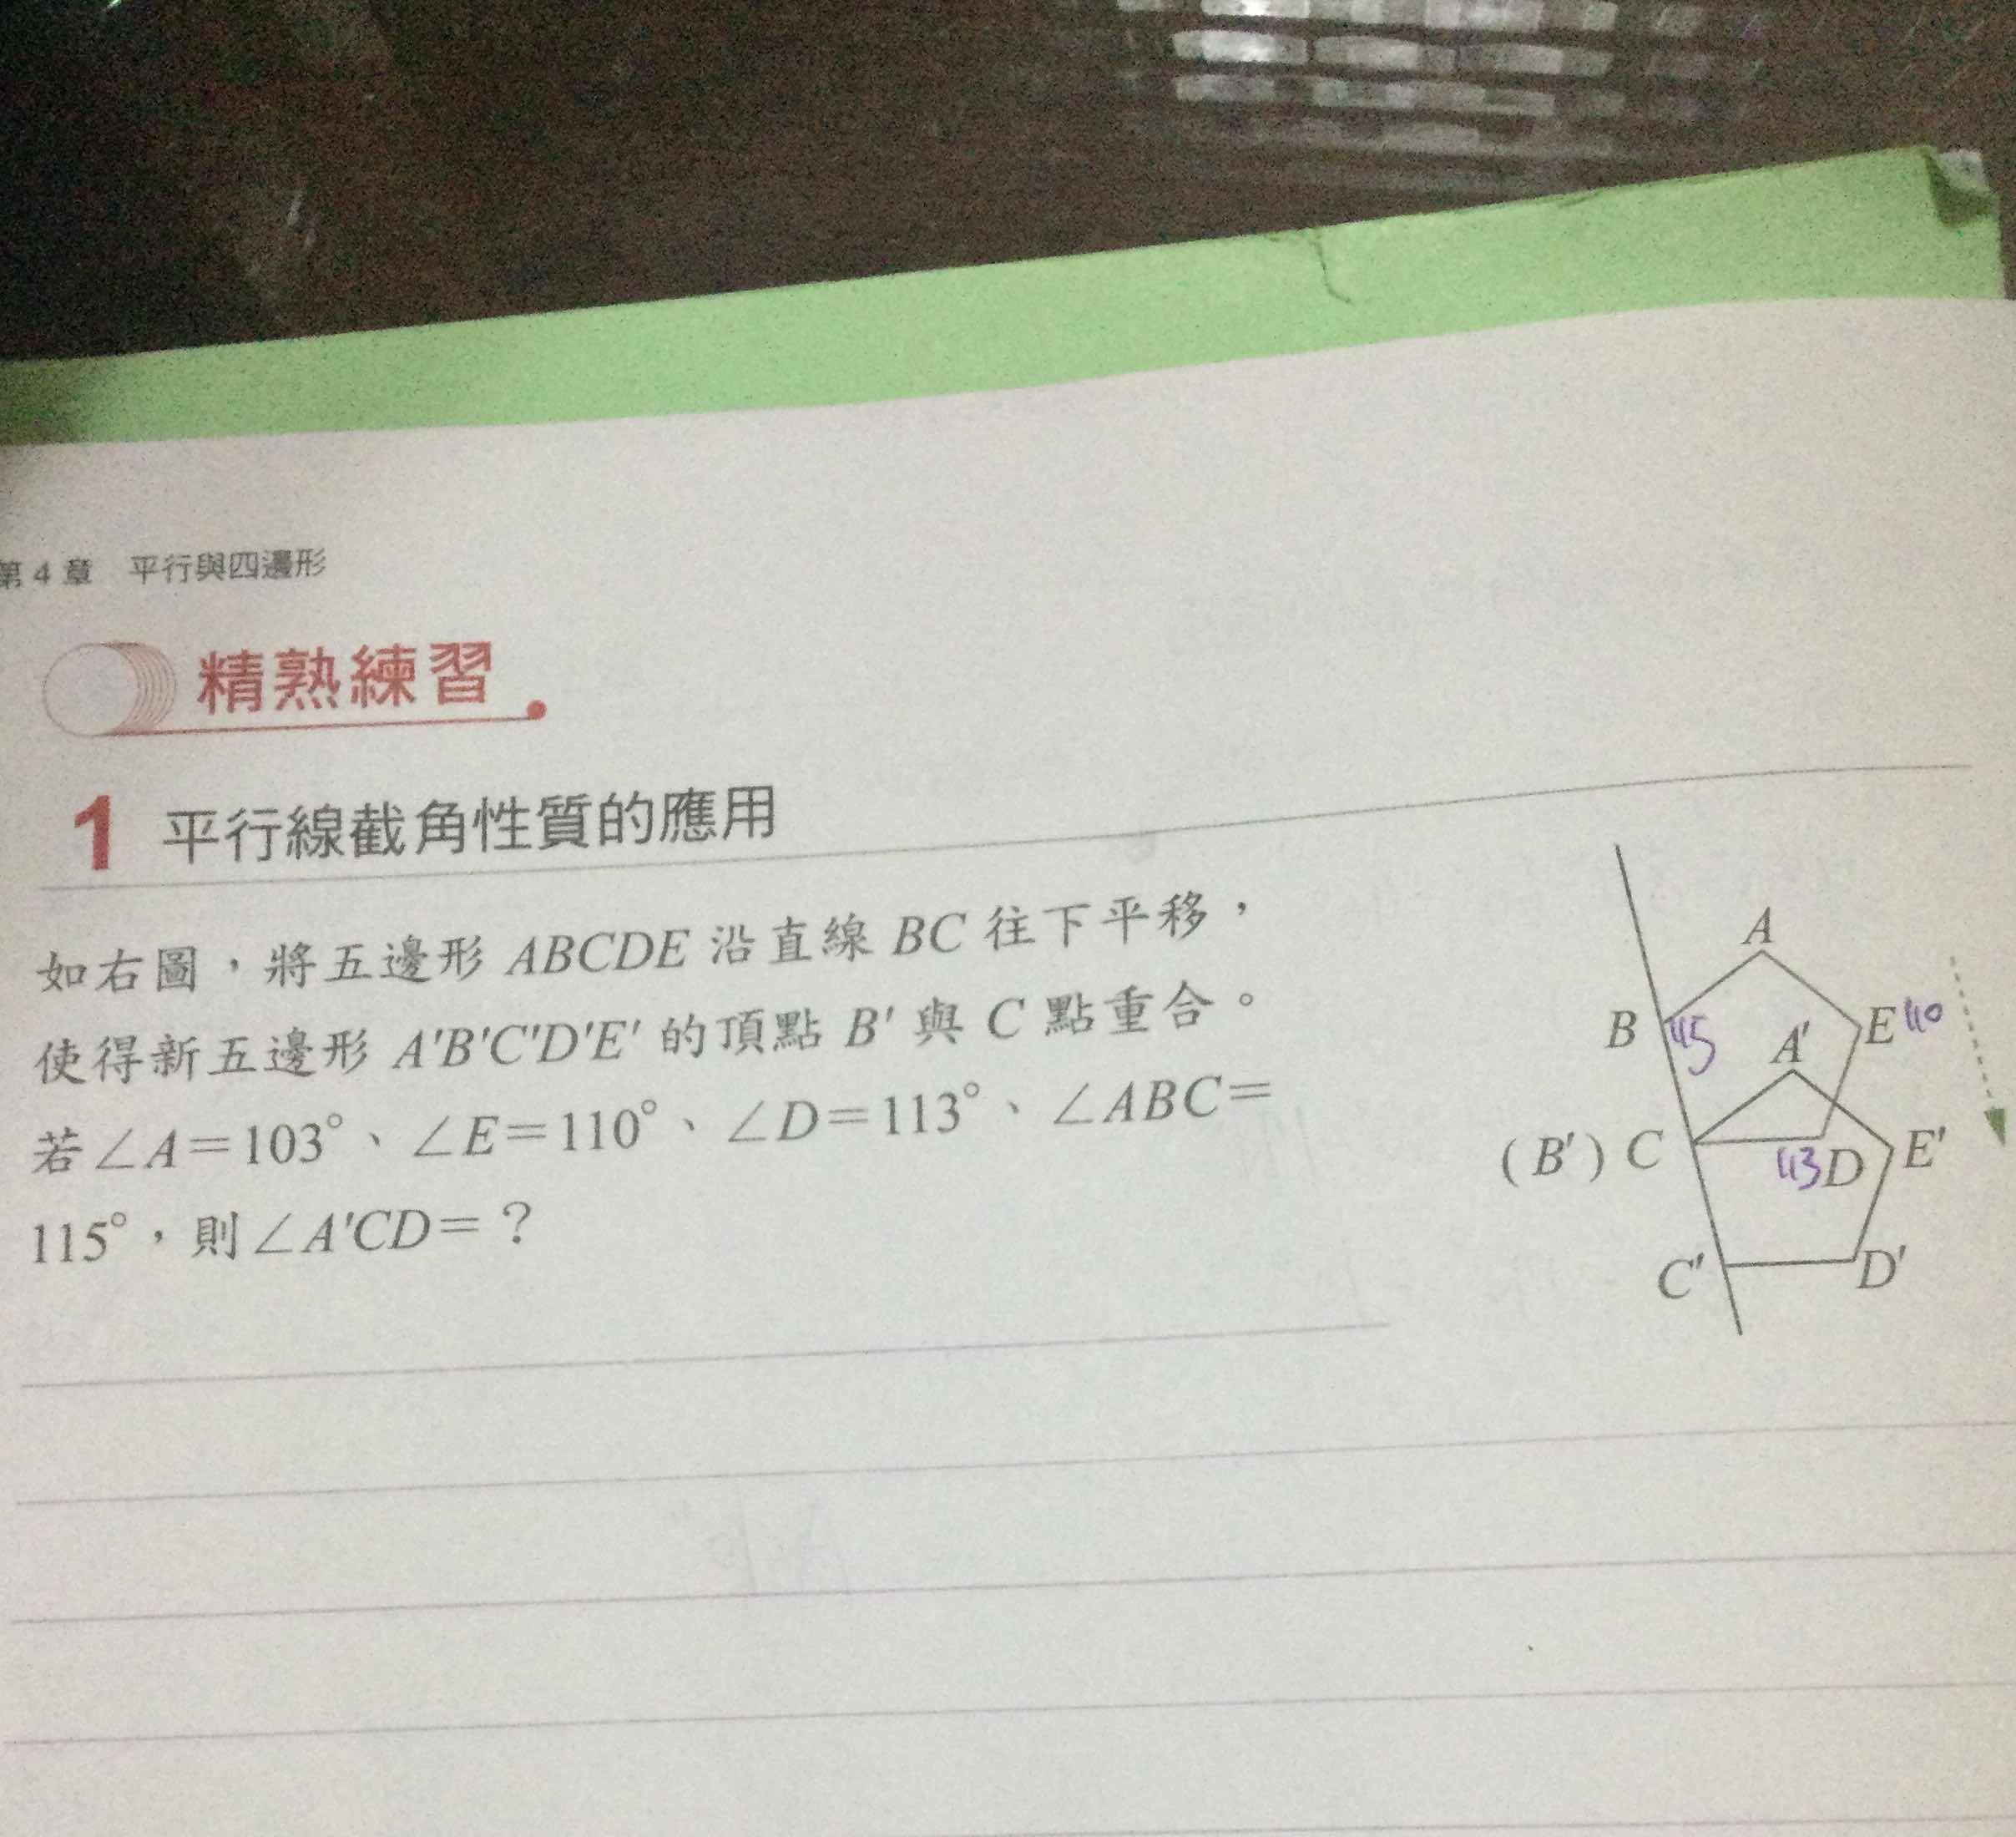 第4章 平行與四邊形
精熟練習
1 平行線截角性質的應用
如右圖,將五邊形 ABCDE 沿直線 BC 往下平移,
使得新五邊形 A'B'C'D'E' 的頂點 B' 與 C 點重合。
若∠A=103°、∠E=110°、∠D=113°、∠ABC=
115°,則∠A'CD=?
A
B 115 A' E 110
(B') C 113 D E'
C' D'